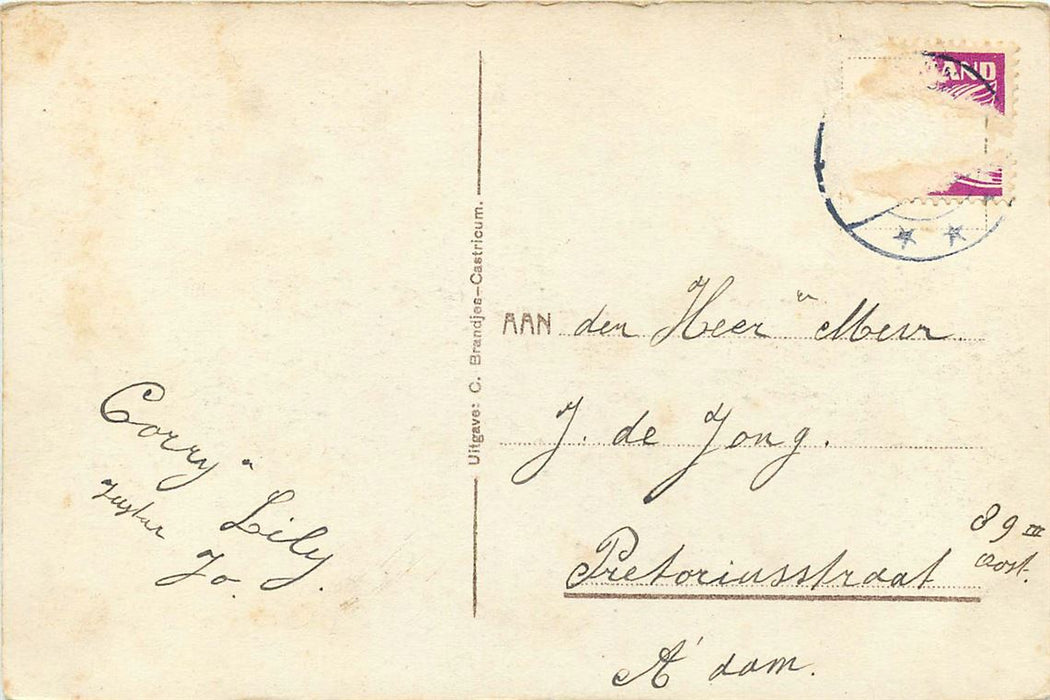 Corry en Lily.
zuster
Jo.
Uitgave: C. Brandjes-Castricum.
AND
AAN den Heer en Mevr.
J. de Jong.
Pretoriusstraat 89 III
Oost.
A'dam.